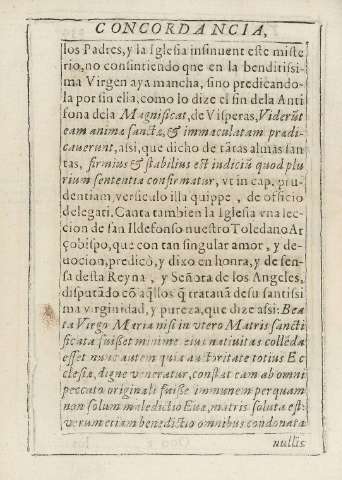 CONCORDANCIA,
los Padres, y la Iglesia insinuent este miste
rio, no consintiendo que en la benditissi
ma Virgen aya mancha, sino predicando-
la por sin ella, como lo dize el fin dela Anti
fona dela Magnificat, de Visperas, Viderũt
eam animæ sanctæ, & immaculatam prædi-
cauerunt, assi, que dicho de tãtas almas san
tas, firmius & stabilius est indiciũ quod plu
rium sententia confirmatur, vt in cap. pru-
dentiam, versiculo illa quippe, de officio
delegati. Canta tambien la Iglesia vna lec-
cion de san Ildefonso nuestro Toledano Ar
çobispo, que con tan singular amor, y de-
uocion, predicò, y dixo en honra, y defen-
sa desta Reyna, y Señora de los Angeles,
disputãdo cõ aq̃llos q̃ tratauã desu santissi
ma virginidad, y pureza, que dize assi: Bea
ta Virgo Maria nisi in vtero Matris sancti
ficata fuisset minime eius natiuitas collẽda
esset nunc autem quia auctoritate totius Ec
clesiæ, digne veneratur, constat eam ab omni
peccato originali fuisse immunem per quam
non solum maledictio Euæ, matris soluta est:
verum etiam benedictio omnibus condonata
nullis